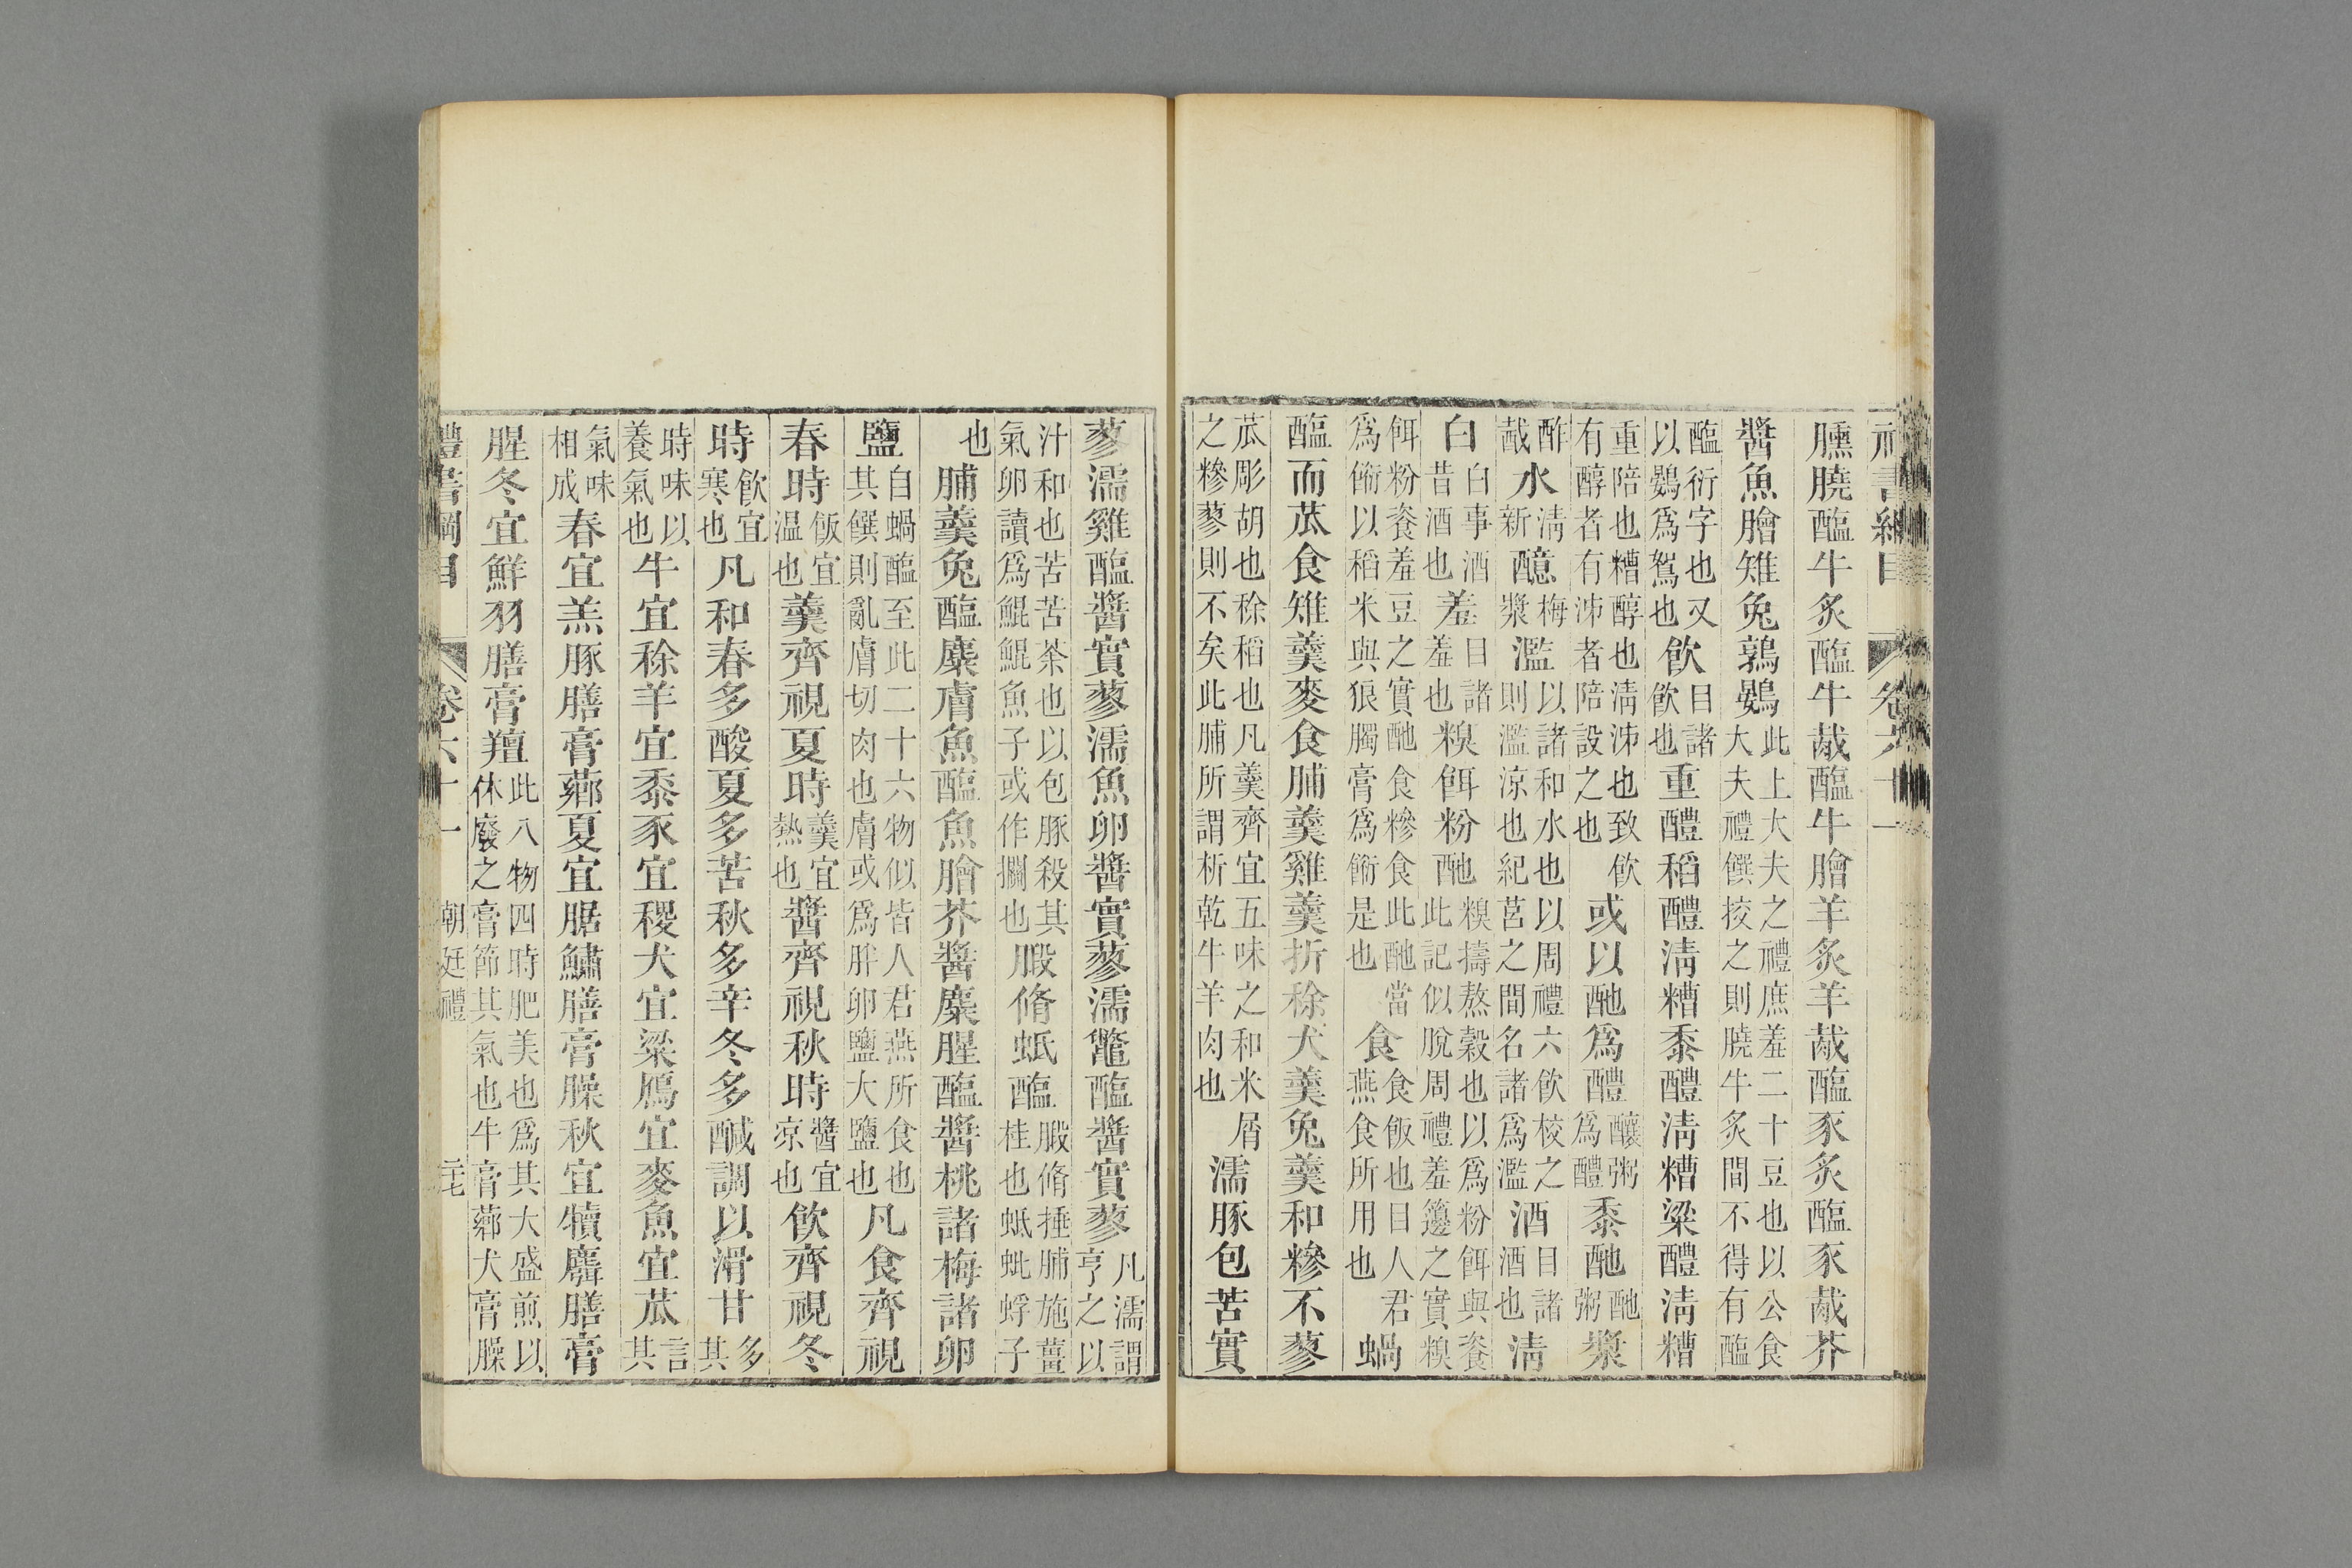 臐膮醢牛炙醢牛胾醢牛膾羊炙羊胾醢豕炙醢豕胾芥
醬魚膾雉兔鶉鷃此上大夫之禮庶羞二十豆也以公食大夫禮饌挍之則膮牛炙間不得有醢
醢衍字也又以鷃爲鴽也飮目諸飮也重醴稻醴淸糟黍醴淸糟粱醴淸糟
重陪也糟醇也淸泲也致飮有醇者有泲者陪設之也或以酏爲醴釀粥爲醴黍酏酏粥漿
酢胾水淸新醷梅漿濫以諸和水也以周禮六飮校之則濫涼也紀莒之間名諸爲濫酒目諸酒也淸
白白事酒昔酒也羞目諸羞也糗餌粉酏糗擣熬穀也以爲粉餌與餈此記似脫周禮羞籩之實糗
餌粉餈羞豆之實酏食糝食此酏當爲餰以稻米與狼臅膏爲餰是也食食飯也目人君燕食所用也蝸
醢而苽食雉羹麥食脯羹雞羹折稌犬羹兔羹和糝不蓼
苽彫胡也稌稻也凡羹齊宜五味之和米屑之糝蓼則不矣此脯所謂析乾牛羊肉也濡豚包苦實
蓼濡雞醢醬實蓼濡魚卵醬實蓼濡鼈醢醬實蓼凡濡謂亨之以
汁和也苦苦荼也以包豚殺其氣卵讀爲鯤鯤魚子或作攔也腶脩蚳醢腶脩捶脯施薑桂也蚳蚍蜉子
也脯羹兔醢麋膚魚醢魚膾芥醬麋腥醢醬桃諸梅諸卵
鹽自蝸醢至此二十六物似皆人君燕所食也其饌則亂膚切肉也膚或爲胖卵鹽大鹽也凡食齊視
春時飯宜温也羹齊視夏時羹宜熱也醬齊視秋時醬宜凉也飮齊視冬
時飮宜寒也凡和春多酸夏多苦秋多辛冬多鹹調以滑甘多其
時味以養氣也牛宜稌羊宜黍豕宜稷犬宜粱鴈宜麥魚宜苽言其
氣味相成春宜羔豚膳膏薌夏宜腒鱐膳膏臊秋宜犢麛膳膏
腥冬宜鮮羽膳膏羶此八物四時肥美也爲其大盛煎以休廢之膏節其氣也牛膏薌犬膏臊
禮書綱目 卷六十一 朝廷禮